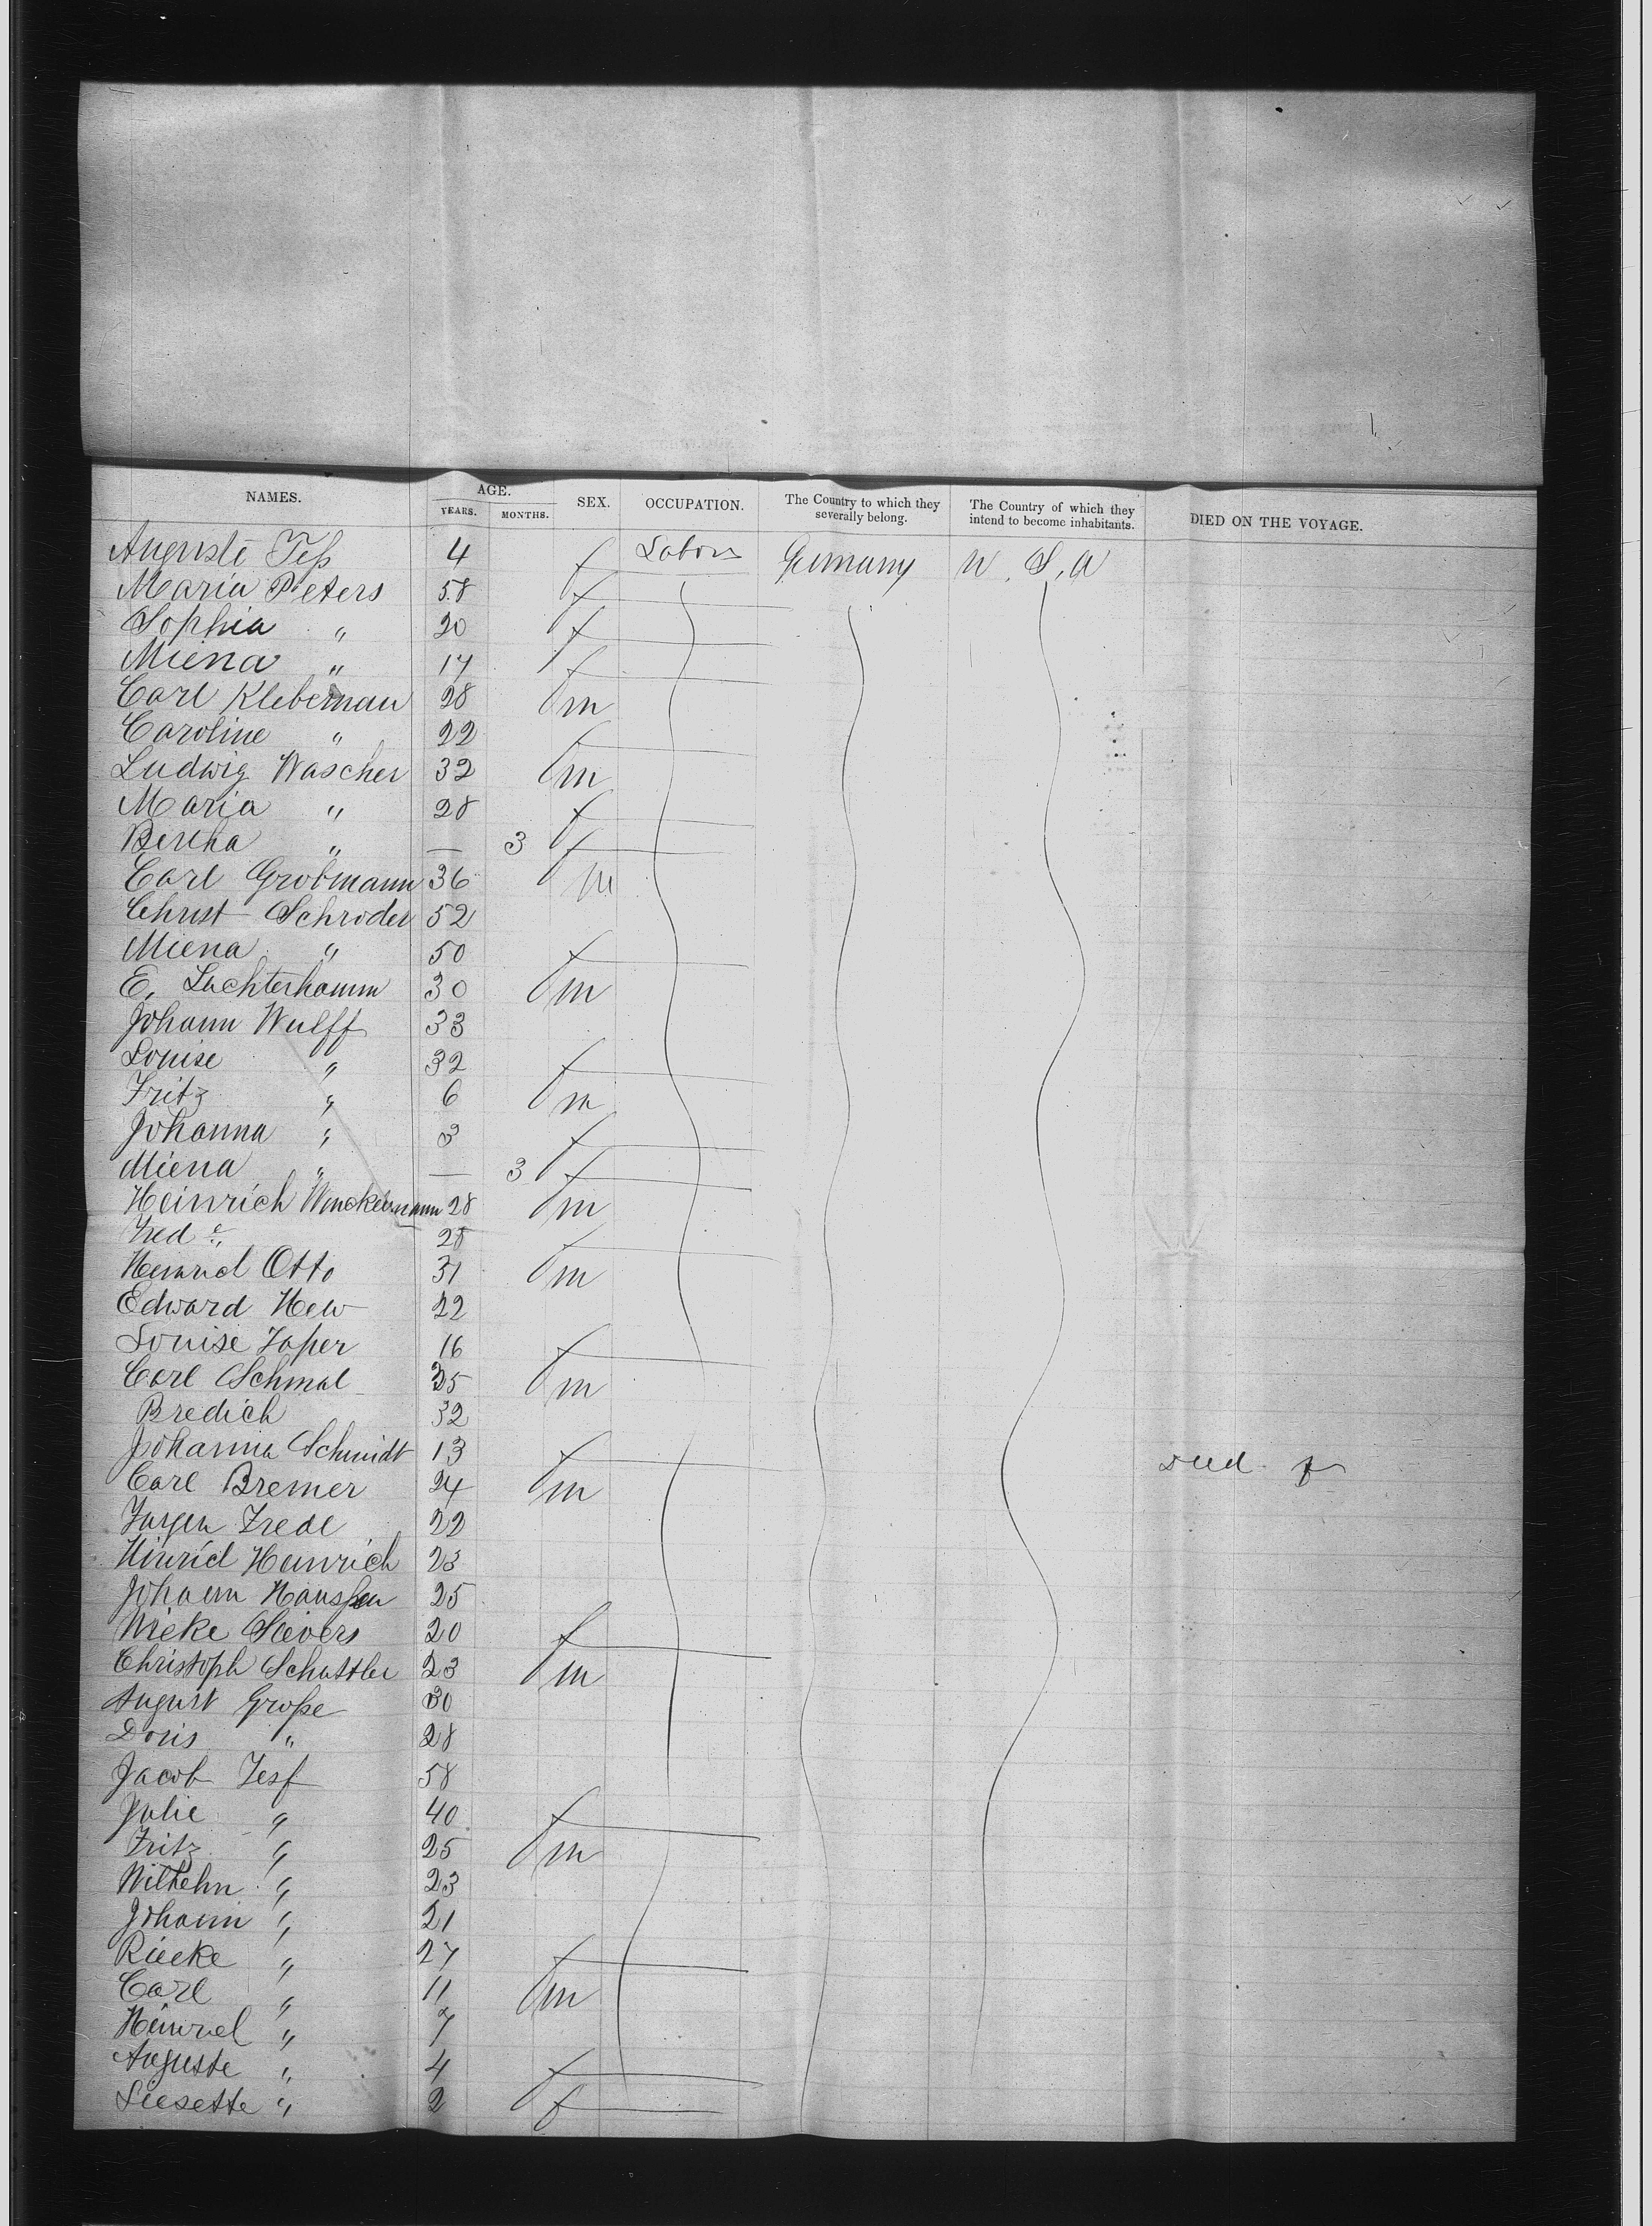 NAMES. AGE. YEARS. MONTHS. SEX. OCCUPATION. The Country to which they severally belong. The Country of which they intend to become inhabitants. DIED ON THE VOYAGE.
Auguste Teß 4 f Labors Germany U. S, A
Maria Peters 58 f
Sophia " 20 f
Miena " 17 f
Carl Kleberman 28 m
Caroline " 22 f
Ludwig Wascher 32 m
Maria " 28 f
Bertha " — 3 f
Carl Grobmann 36 m
Christ Schroder 52
Miena " 50 f
E. Luchterhamm 30 m
Johann Wulff 33
Louise " 32 f
Fritz " 6 m
Johanna " 3 f
Miena " — 3 f
Heinrich Winckelmann 28 m
Fred 28 f
Heinrich Otto 31 m
Edward Hew 22
Louise Taper 16 f
Carl Schmal 35 m
Bredich 32
Johanna Schmidt 13 f Died f
Carl Bremer 24 m
Jurgen Frede 22
Hinrich Heinrich 23
Johann Haussen 25
Wieke Sievers 20 f
Christoph Schuttler 23 m
August Große 30
Doris " 28
Jacob Tesf 58
Julie " 40 f
Fritz " 25 m
Wilhelm " 23
Johann " 21
Riecke " 27 f
Carl " 11 m
Heinrich " 7
Auguste " 4 f
Liesette " 2 f